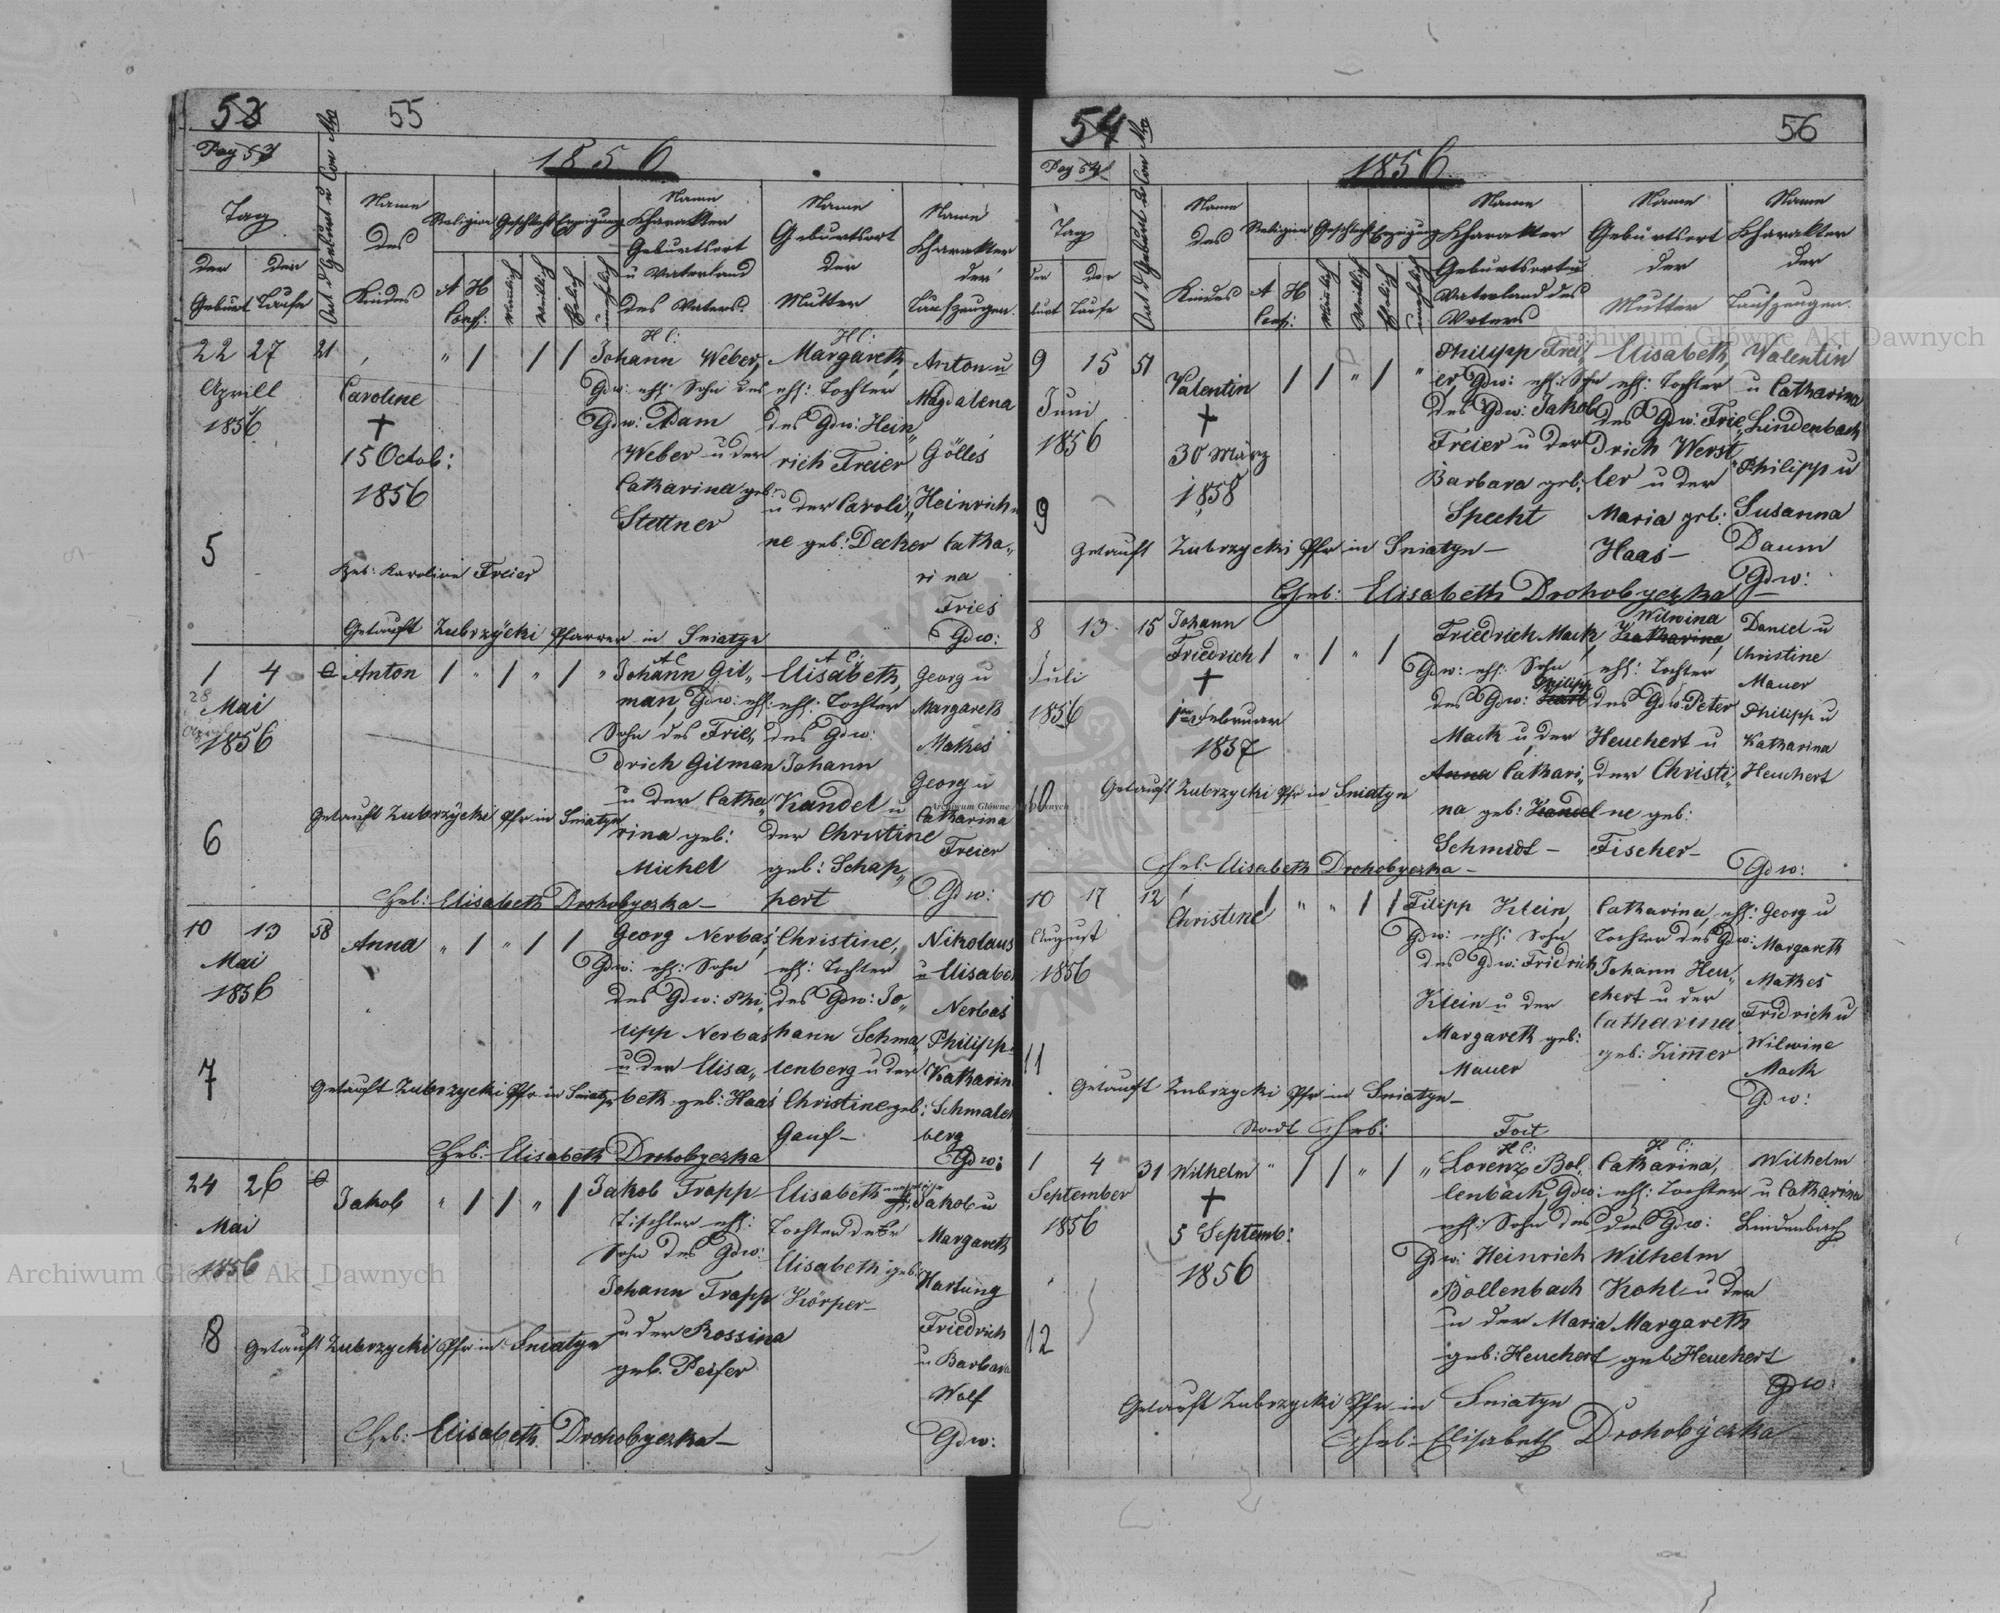 53 55
Pag 53
1856
Tag
der Geburt
der Taufe
Ort d Geburt u Con Nro
Name des Kindes
Religion
A H
Conf:
Geschlecht
Männlich
Weiblich
Erzeigung
Ehelich
unehelich
Name
Charakter
Geburtsort
u Vaterland
des Vaters
Name
Geburtsort
der
Mutter
Name
Charakter
der
Taufzeugen.
22 27 21
Aprill
1856
5
Caroline
+
15 Octob:
1856
Heb: Karoline Freier
Getauft Zubrzycki Pfarrer in Sniatyn
H C:
Johann Weber,
Gdw: ehl: Sohn des
Gdw: Adam
Weber u der
Catharina geb:
Stettner
H C:
Margareth,
ehl: Tochter
des Gdw: Hein„
rich Freier
u der Caroli„
ne geb: Decker
Anton u
Magdalena
Gölles
Heinrich u
Catha„
rina
Fries
Gdw:
1 4
28
Mai
1856
6
Anton
Getauft Zubrzycki Pfr in Sniatyn
Heb: Elisabeth Drohobyczka —
A C
Johann Gil„
man, Gdw: ehl:
Sohn des Frie„
drich Gilman
u der Catha„
rina geb:
Michel
A C:
Elisabeth,
ehl: Tochter
des Gdw:
Johann
Kandel u
der Christine
geb: Schap„
pert
Georg u
Margareth
Mathes
Georg u
Catharina
Freier
Gdw:
10 13 58
Mai
1856
7
Anna
Getauft Zubrzycki Pfr in Sniatyn
Heb: Elisabeth Drohobyczka
Georg Nerbas,
Gdw: ehl: Sohn
des Gdw: Phi„
lipp Nerbas
u der Elisa„
beth geb: Haas
Christine,
ehl: Tochter
des Gdw: Jo„
hann Schma„
lenberg u der
Christine geb:
Gauf —
Nikolaus
u Elisabe
Nerbas
Philipp
Katharin
Schmalen
berg
Gdw:
24 26
Mai
1856
8
Jakob
Getauft Zubrzycki Pfr in Sniatyn
Heb: Elisabeth Drohobyczka —
Jakob Trapp
Tischler ehl:
Sohn des Gdw:
Johann Trapp
u der Rossina
geb. Peifer
Elisabeth
Tochter der
Elisabeth geb:
Körper —
Jakob u
Margareth
Hartung
Friedrich
u Barbara
Wolf
Gdw:
54 56
Pag 54
1856
Tag
der Taufe
Ort d Geburt u Con Nro
Name
des
Kindes
Religion
A H
Conf:
Geschlecht
Männlich
Weiblich
Erzeigung
Ehelich
unehelich
Name
Charakter
Geburtsort u
Vaterland des
Vaters
Name
Geburtsort
der
Mutter
Name
Charakter
der
Taufzeugen.
9 15 51
Juni
1856
9
Valentin
+
30 März
1858
Getauft Zubrzycki Pfr in Sniatyn —
Heb: Elisabeth Drohobyczka
Philipp Frei„
er, Gdw: ehl: Sohn
des Gdw: Jakob
Freier u der
Barbara geb:
Specht
Elisabeth,
ehl: Tochter
des Gdw: Frie„
drich Werst„
ler u der
Maria geb:
Haas —
Valentin
u Catharina
Lindenbach
Philipp u
Susanna
Daum
Gdw:
8 13 15
Juli
1856
10
Johann
Friedrich
+
1ten Februar
1857
Getauft Zubrzycki Pfr in Sniatyn
Heb: Elisabeth Drohobyczka —
Friedrich Mack,
Gdw: ehl: Sohn
des Gdw: Philipp
Mack u der
Anna Cathari„
na geb: Kandel
Schmidt —
Wilwina
Katharina,
ehl: Tochter
des Gdw: Peter
Heuchert u
der Christi„
ne geb:
Fischer —
Daniel u
Christine
Mauer
Philipp u
Katharina
Heuchert
Gdw:
10 17 12
August
1856
11
Christine
Getauft Zubrzycki Pfr in Sniatyn —
Stadt Heb: Foit
Filipp Klein,
Gdw: ehl: Sohn
des Gdw: Fridrich
Klein u der
Margareth geb:
Mauer
Catharina, ehl:
Tochter des Gdw:
Johann Heu„
chert u der
Catharina
geb: Zimmer
Georg u
Margareth
Mathes
Fridrich u
Wilwine
Mack
Gdw:
1 4 31
September
1856
12
Wilhelm
+
5 Septemb:
1856
Getauft Zubrzycki Pfr in Sniatyn
Heb: Elisabeth Drohobyczka
H C:
Lorenz Bol„
lenbach, Gdw:
ehl: Sohn des
Gdw: Heinrich
Bollenbach
u der Maria
geb: Heuchert
H C:
Catharina,
ehl: Tochter
des Gdw:
Wilhelm
Kohl u der
Margareth
geb Heuchert
Wilhelm
u Catharina
Lindenbach
Gdw:
Archiwum Główne Akt Dawnych
Archiwum Główne Akt Dawnych
Archiwum Główne Akt Dawnych